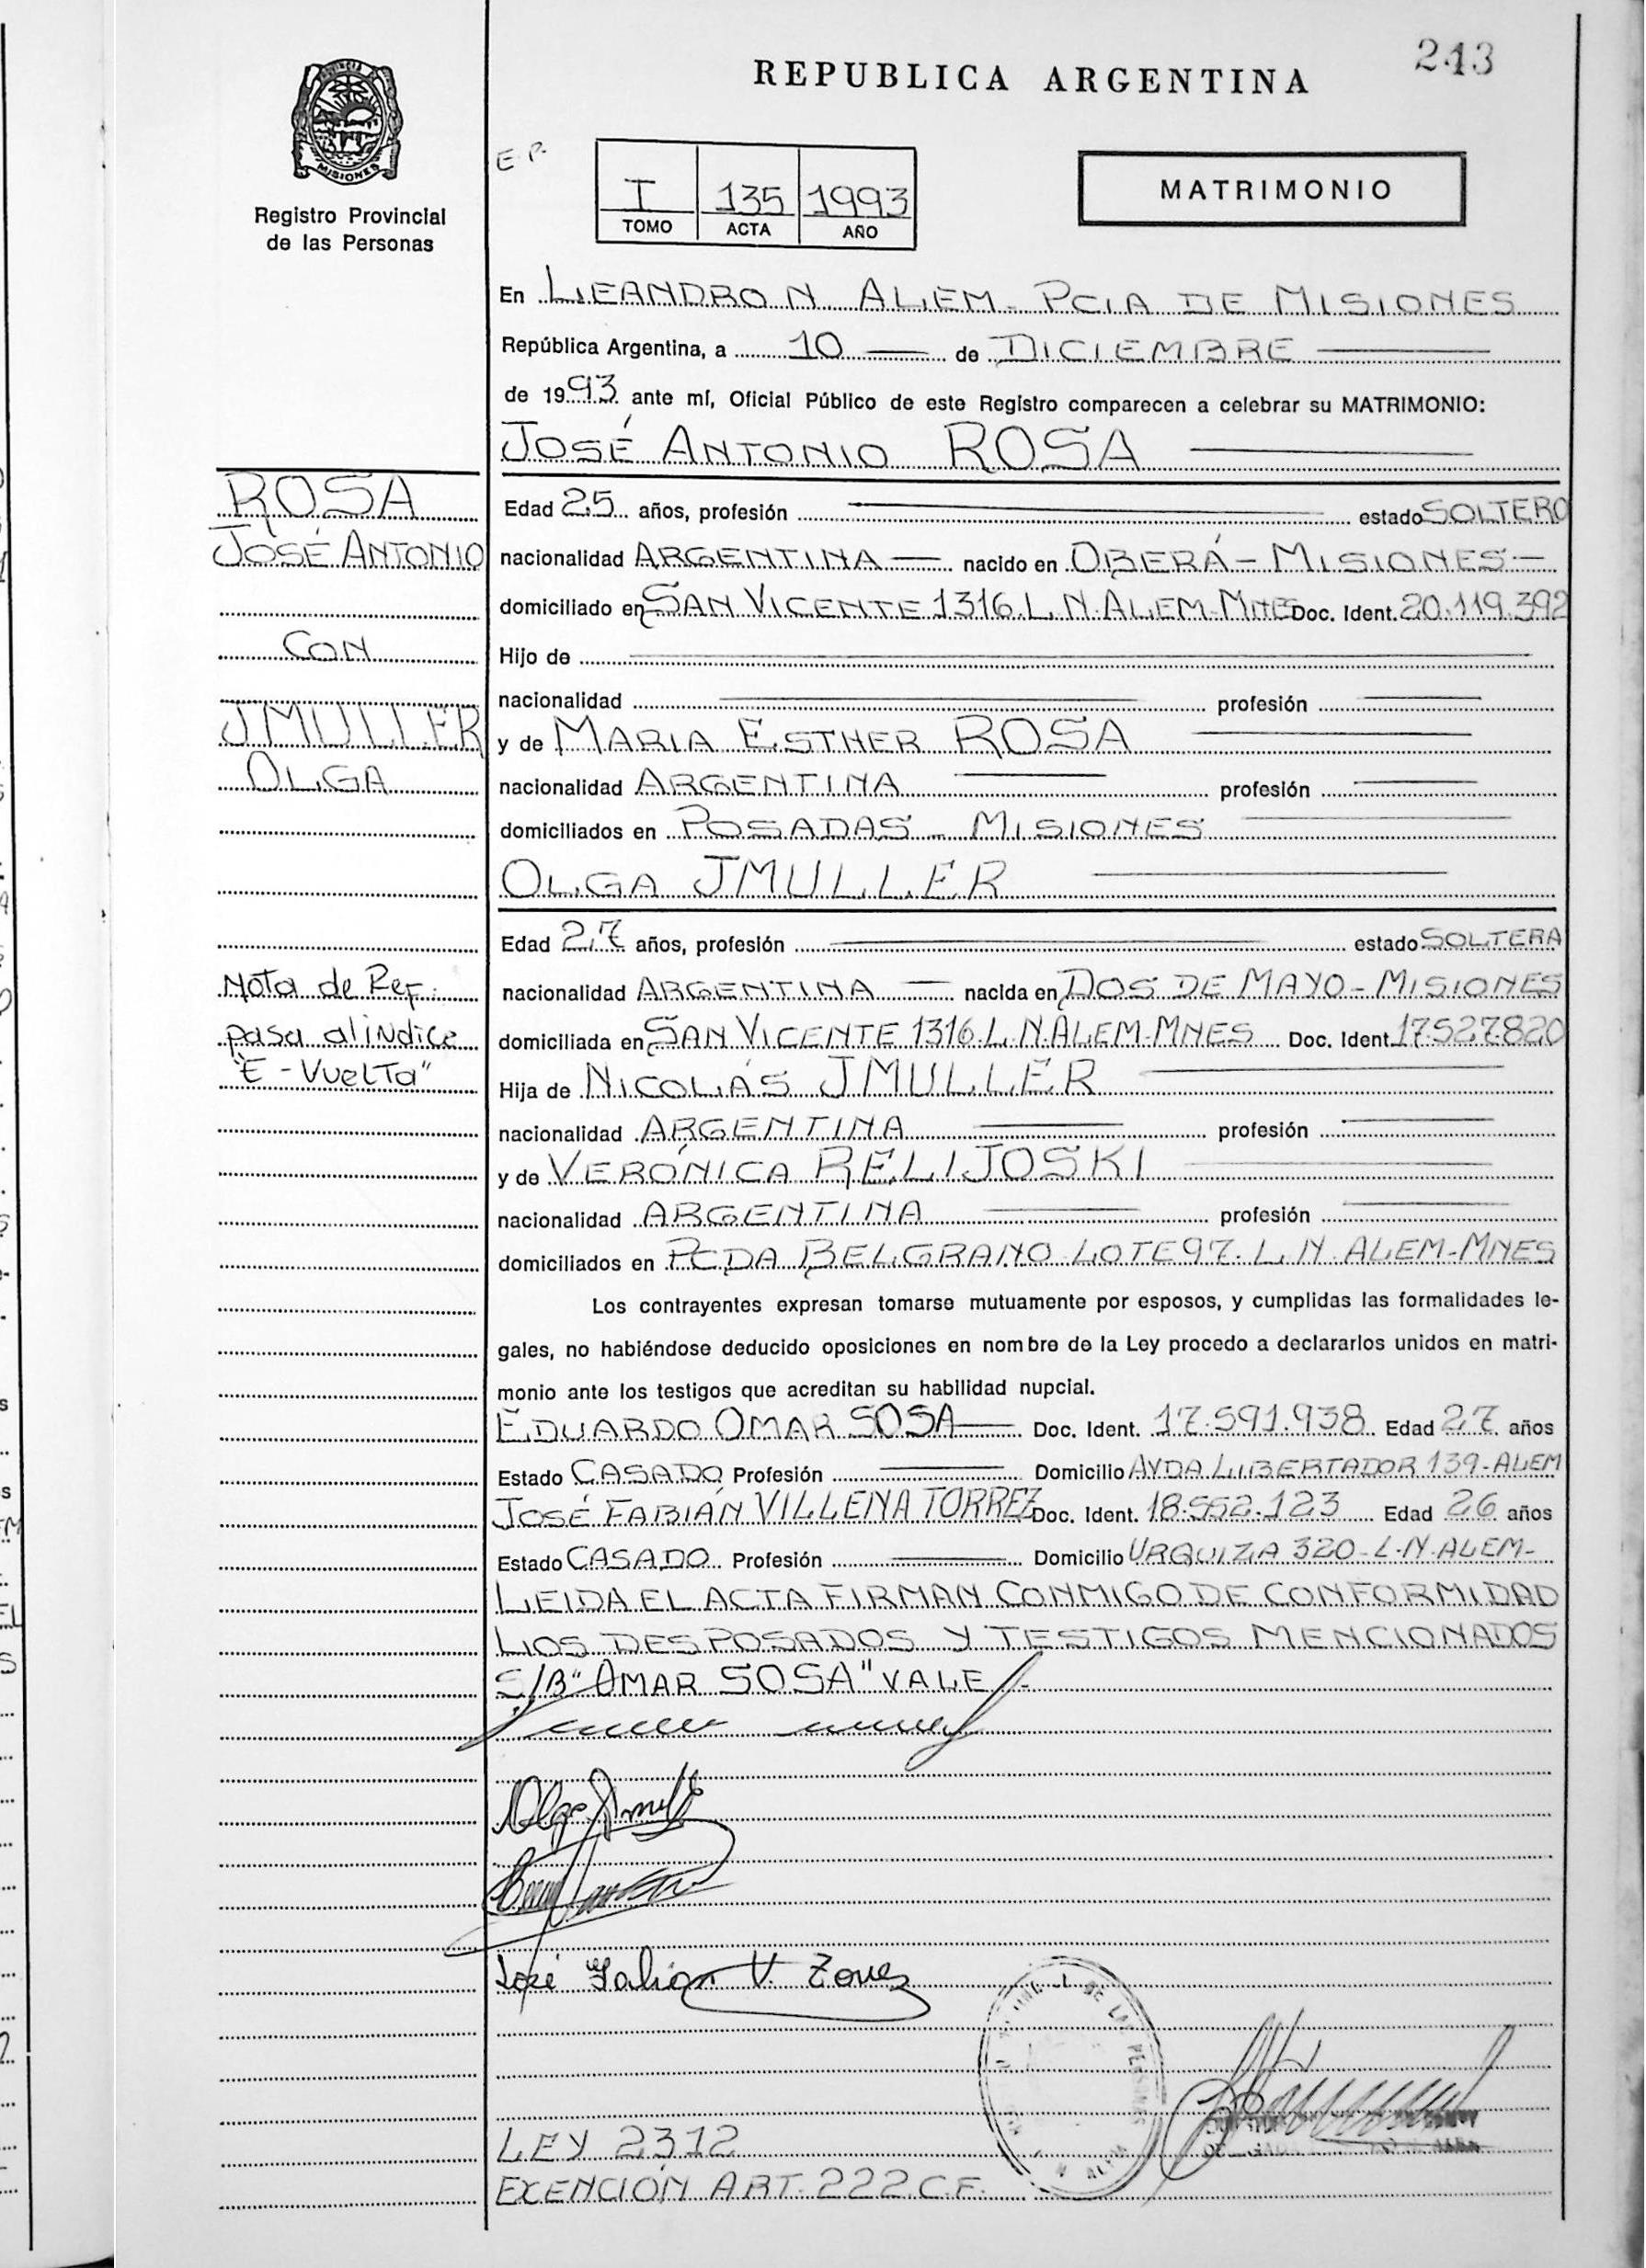 243
REPUBLICA ARGENTINA
MISIONES
Registro Provincial
de las Personas
E.P.
I 135 1993
TOMO ACTA AÑO
MATRIMONIO
En LEANDRO N. ALEM - PCIA DE MISIONES
República Argentina, a 10 de DICIEMBRE
de 1993 ante mí, Oficial Público de este Registro comparecen a celebrar su MATRIMONIO:
JOSÉ ANTONIO ROSA
ROSA
JOSÉ ANTONIO
CON
JMULLER
OLGA
Nota de Ref:
pasa al indice
"E - Vuelta"
Edad 25 años, profesión estado SOLTERO
nacionalidad ARGENTINA nacido en OBERÁ - MISIONES
domiciliado en SAN VICENTE 1316. L.N. ALEM-MNES Doc. Ident. 20.119.392
Hijo de
nacionalidad profesión
y de MARIA ESTHER ROSA
nacionalidad ARGENTINA profesión
domiciliados en POSADAS - MISIONES
OLGA JMULLER
Edad 27 años, profesión estado SOLTERA
nacionalidad ARGENTINA nacida en DOS DE MAYO - MISIONES
domiciliada en SAN VICENTE 1316. L.N. ALEM-MNES Doc. Ident. 17.527.820
Hija de NICOLÁS JMULLER
nacionalidad ARGENTINA profesión
y de VERÓNICA RELIJOSKI
nacionalidad ARGENTINA profesión
domiciliados en PCDA BELGRANO LOTE 97. L.N. ALEM-MNES
Los contrayentes expresan tomarse mutuamente por esposos, y cumplidas las formalidades le-
gales, no habiéndose deducido oposiciones en nombre de la Ley procedo a declararlos unidos en matri-
monio ante los testigos que acreditan su habilidad nupcial.
EDUARDO OMAR SOSA Doc. Ident. 17.591.938 Edad 27 años
Estado CASADO Profesión Domicilio AVDA LIBERTADOR 139-ALEM
JOSÉ FABIÁN VILLENA TORREZ Doc. Ident. 18.552.123 Edad 26 años
Estado CASADO Profesión Domicilio URQUIZA 320-L.N. ALEM-
LEIDA EL ACTA FIRMAN CONMIGO DE CONFORMIDAD
LOS DESPOSADOS Y TESTIGOS MENCIONADOS
S/B "OMAR SOSA" VALE
Olga Jmuller
José Fabian V. Torrez
LEY 2312
EXENCIÓN ART. 222 C.F.